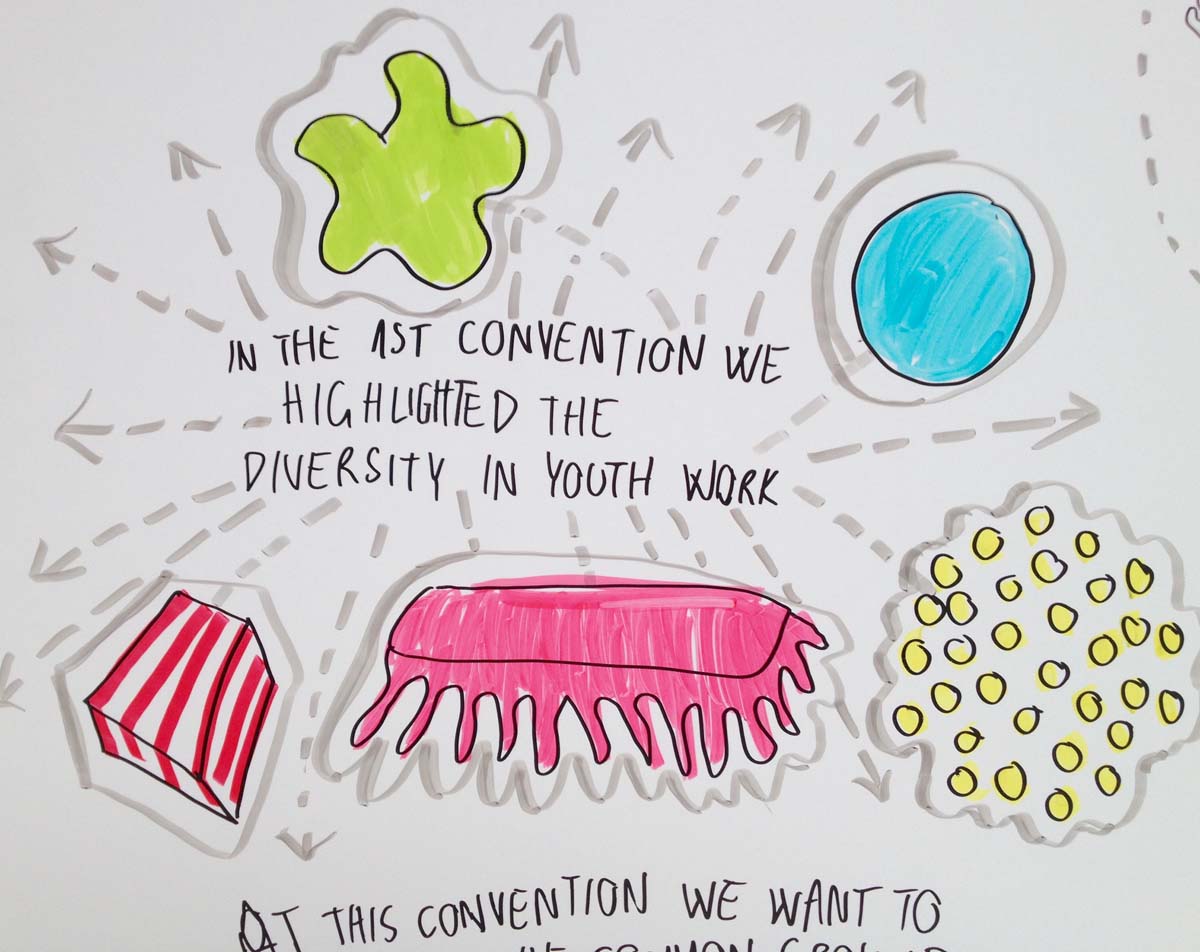 IN THE 1ST CONVENTION WE
HIGHLIGHTED THE
DIVERSITY IN YOUTH WORK
AT THIS CONVENTION WE WANT TO
COMMON GROUND